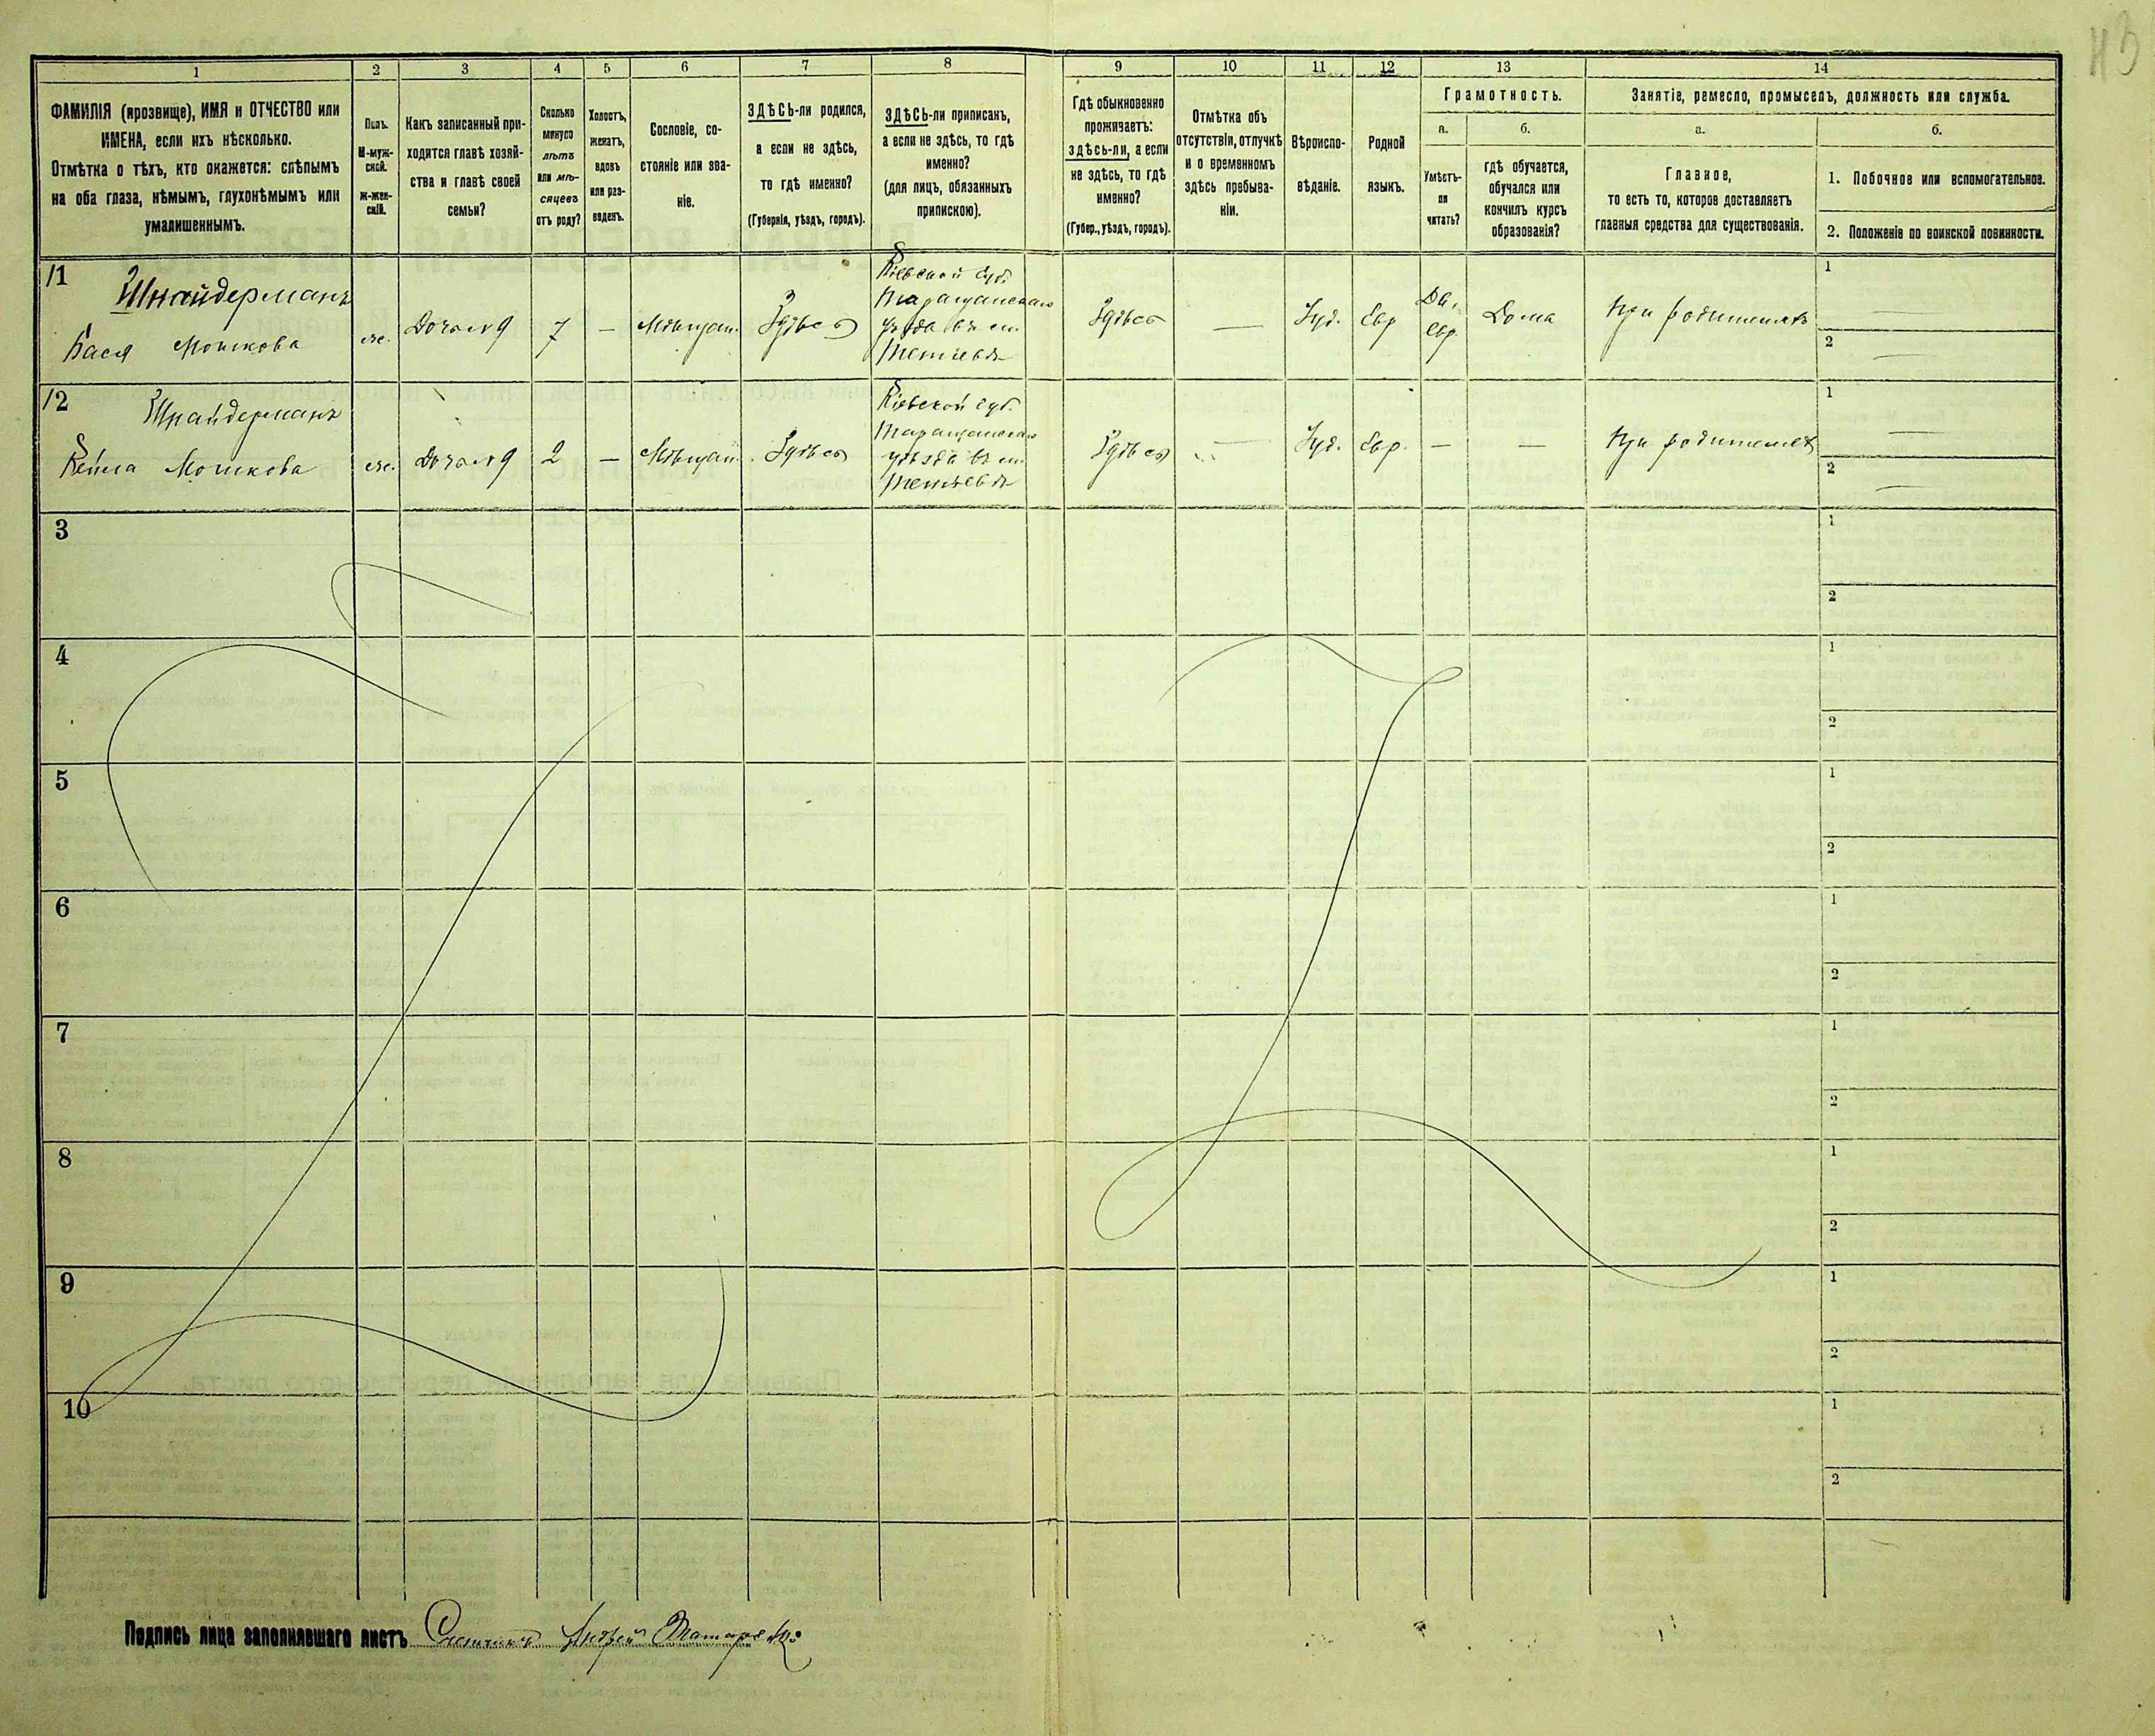 1
2
3
4
5
6
7
8
9
10
11
12
13
14
ФАМИЛІЯ (прозвище), ИМЯ и ОТЧЕСТВО или
ИМЕНА, если ихъ нѣсколько.
Отмѣтка о тѣхъ, кто окажется: слѣпымъ
на оба глаза, нѣмымъ, глухонѣмымъ или
умалишеннымъ.
Полъ.
М-муж-
ской.
Ж-жен-
скій.
Какъ записанный при-
ходится главѣ хозяй-
ства и главѣ своей
семьи?
Сколько
минуло
лѣтъ
или мѣ-
сяцевъ
отъ роду?
Холостъ,
женатъ,
вдовъ
или раз-
веденъ.
Сословіе, со-
стояніе или зва-
ніе.
ЗДѢСЬ-ли родился,
а если не здѣсь,
то гдѣ именно?
(Губернія, уѣздъ, городъ).
ЗДѢСЬ-ли приписанъ,
а если не здѣсь, то гдѣ
именно?
(для лицъ, обязанныхъ
припискою).
Гдѣ обыкновенно
проживаетъ:
здѣсь-ли, а если
не здѣсь, то гдѣ
именно?
(Губер., уѣздъ, городъ).
Отмѣтка объ
отсутствіи, отлучкѣ
и о временномъ
здѣсь пребыва-
ніи.
Вѣроиспо-
вѣданіе.
Родной
языкъ.
Грамотность.
а.
Умѣетъ-
ли
читать?
б.
гдѣ обучается,
обучался или
кончилъ курсъ
образованія?
Занятіе, ремесло, промыселъ, должность или служба.
а.
Главное,
то есть то, которое доставляетъ
главныя средства для существованія.
б.
1. Побочное или вспомогательное.
2. Положеніе по воинской повинности.
11
Шнайдерманъ
Бася Мошкова
же.
Дочь №9
7
—
Мѣщан.
Здѣсь
Кіевской губ.
Таращанскаго
уѣзда въ м.
Тетіевѣ
Здѣсь
—
Іуд.
Евр
Да,
Евр.
Дома
При родителяхъ
1
—
2
—
12
Шнайдерманъ
Кейла Мошкова
же.
Дочь №9
2
—
Мѣщан.
Здѣсь
Кіевской губ.
Таращанскаго
уѣзда въ м.
Тетіевѣ
Здѣсь
—
Іуд.
Евр.
—
—
При родителях
1
—
2
—
3
1
2
4
1
2
5
1
2
6
1
2
7
1
2
8
1
2
9
1
2
10
1
2
Подпись лица заполнявшаго листъ Счетчикъ Андрей